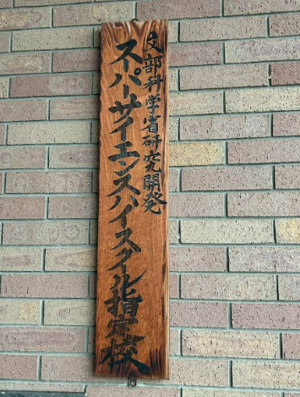 文部科学省研究開発
スーパーサイエンスハイスクール指定校